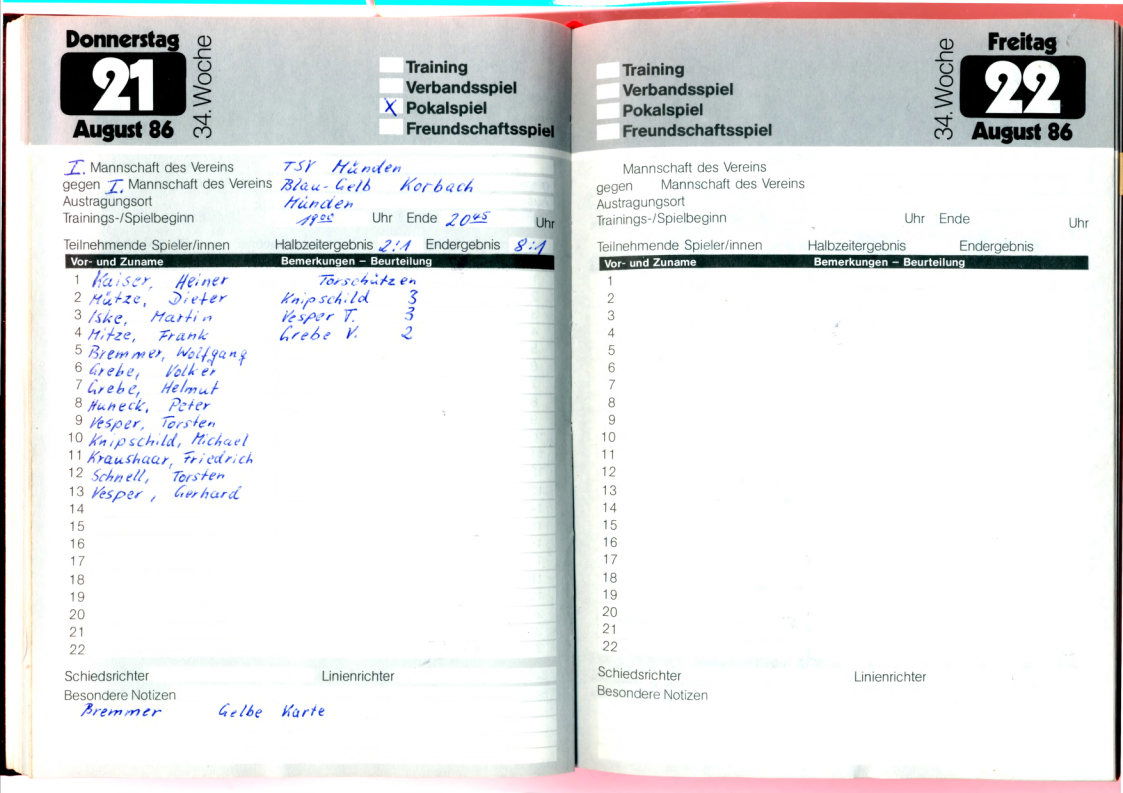 Donnerstag
21
August 86
34. Woche
Training
Verbandsspiel
X Pokalspiel
Freundschaftsspiel
I. Mannschaft des Vereins TSV Münden
gegen I. Mannschaft des Vereins Blau-Gelb Korbach
Austragungsort Münden
Trainings-/Spielbeginn 19 00 Uhr Ende 20 45 Uhr
Teilnehmende Spieler/innen Halbzeitergebnis 2:1 Endergebnis 8:1
Vor- und Zuname Bemerkungen – Beurteilung
1 Kaiser, Heiner Torschützen
2 Mütze, Dieter Knipschild 3
3 Iske, Martin Vesper T. 3
4 Mitze, Frank Grebe V. 2
5 Bremmer, Wolfgang
6 Grebe, Volker
7 Grebe, Helmut
8 Huneck, Peter
9 Vesper, Torsten
10 Knipschild, Michael
11 Kraushaar, Friedrich
12 Schnell, Torsten
13 Vesper, Gerhard
14
15
16
17
18
19
20
21
22
Schiedsrichter Linienrichter
Besondere Notizen
Bremmer Gelbe Karte
Training
Verbandsspiel
Pokalspiel
Freundschaftsspiel
34. Woche
Freitag
22
August 86
Mannschaft des Vereins
gegen Mannschaft des Vereins
Austragungsort
Trainings-/Spielbeginn Uhr Ende Uhr
Teilnehmende Spieler/innen Halbzeitergebnis Endergebnis
Vor- und Zuname Bemerkungen – Beurteilung
1
2
3
4
5
6
7
8
9
10
11
12
13
14
15
16
17
18
19
20
21
22
Schiedsrichter Linienrichter
Besondere Notizen